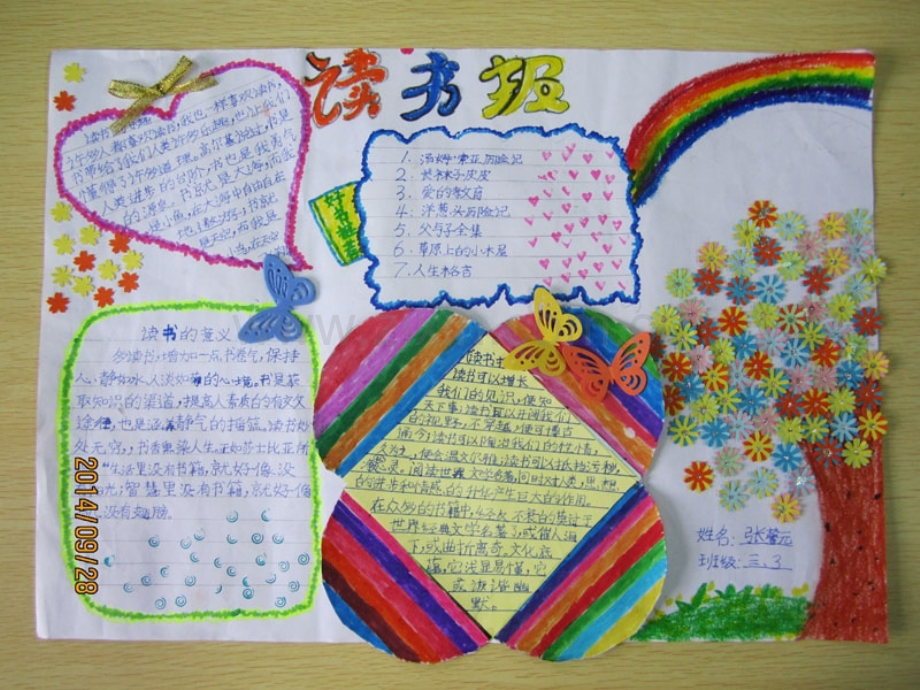 读书报
许多人都喜欢读书,我也一样喜欢读书,
书带给了我们人类许多乐趣,也让我们
懂得了许多道理,高尔基说过,书是
人类进步的阶
的源泉。书就是大海,而我
是小鱼,在大海中自由自在
是天空,而我是
小鸟,在天空
1. 汤姆·索亚历险记
2. 长袜子皮皮
3. 爱的教育
4. 洋葱头历险记
5. 父与子全集
6. 草原上的小木屋
7. 人生格言
读书的意义
多读书,增加一点书卷气,保持
人静如水、人淡如菊的心境,书是获
取知识的渠道,提高人素质的有效
途径,也是涵养静气的摇篮,读书妙
处无穷,书香熏染人生,正如莎士比亚所
"生活里没有书籍,就好像没
阳光;智慧里没有书籍,就好像
没有翅膀。
读书可以增长
我们的见识,使知
天下事;读书可以开阔我们
的视野,不穿越便可懂古
通今;读书可以陶冶我们的性情,
使会温文尔雅;读书可以
心灵,通读世界文学名著,同时对人类,思想
的进步和情感的升华产生巨大的作用。
在众多的书籍中,经久不衰的莫过于
世界经典文学名著,或留人
下,或曲折离奇,文化底
蕴,它浅显易懂,它
或诙谐幽
默。
姓名:张
班级:三.3
2014/09/28